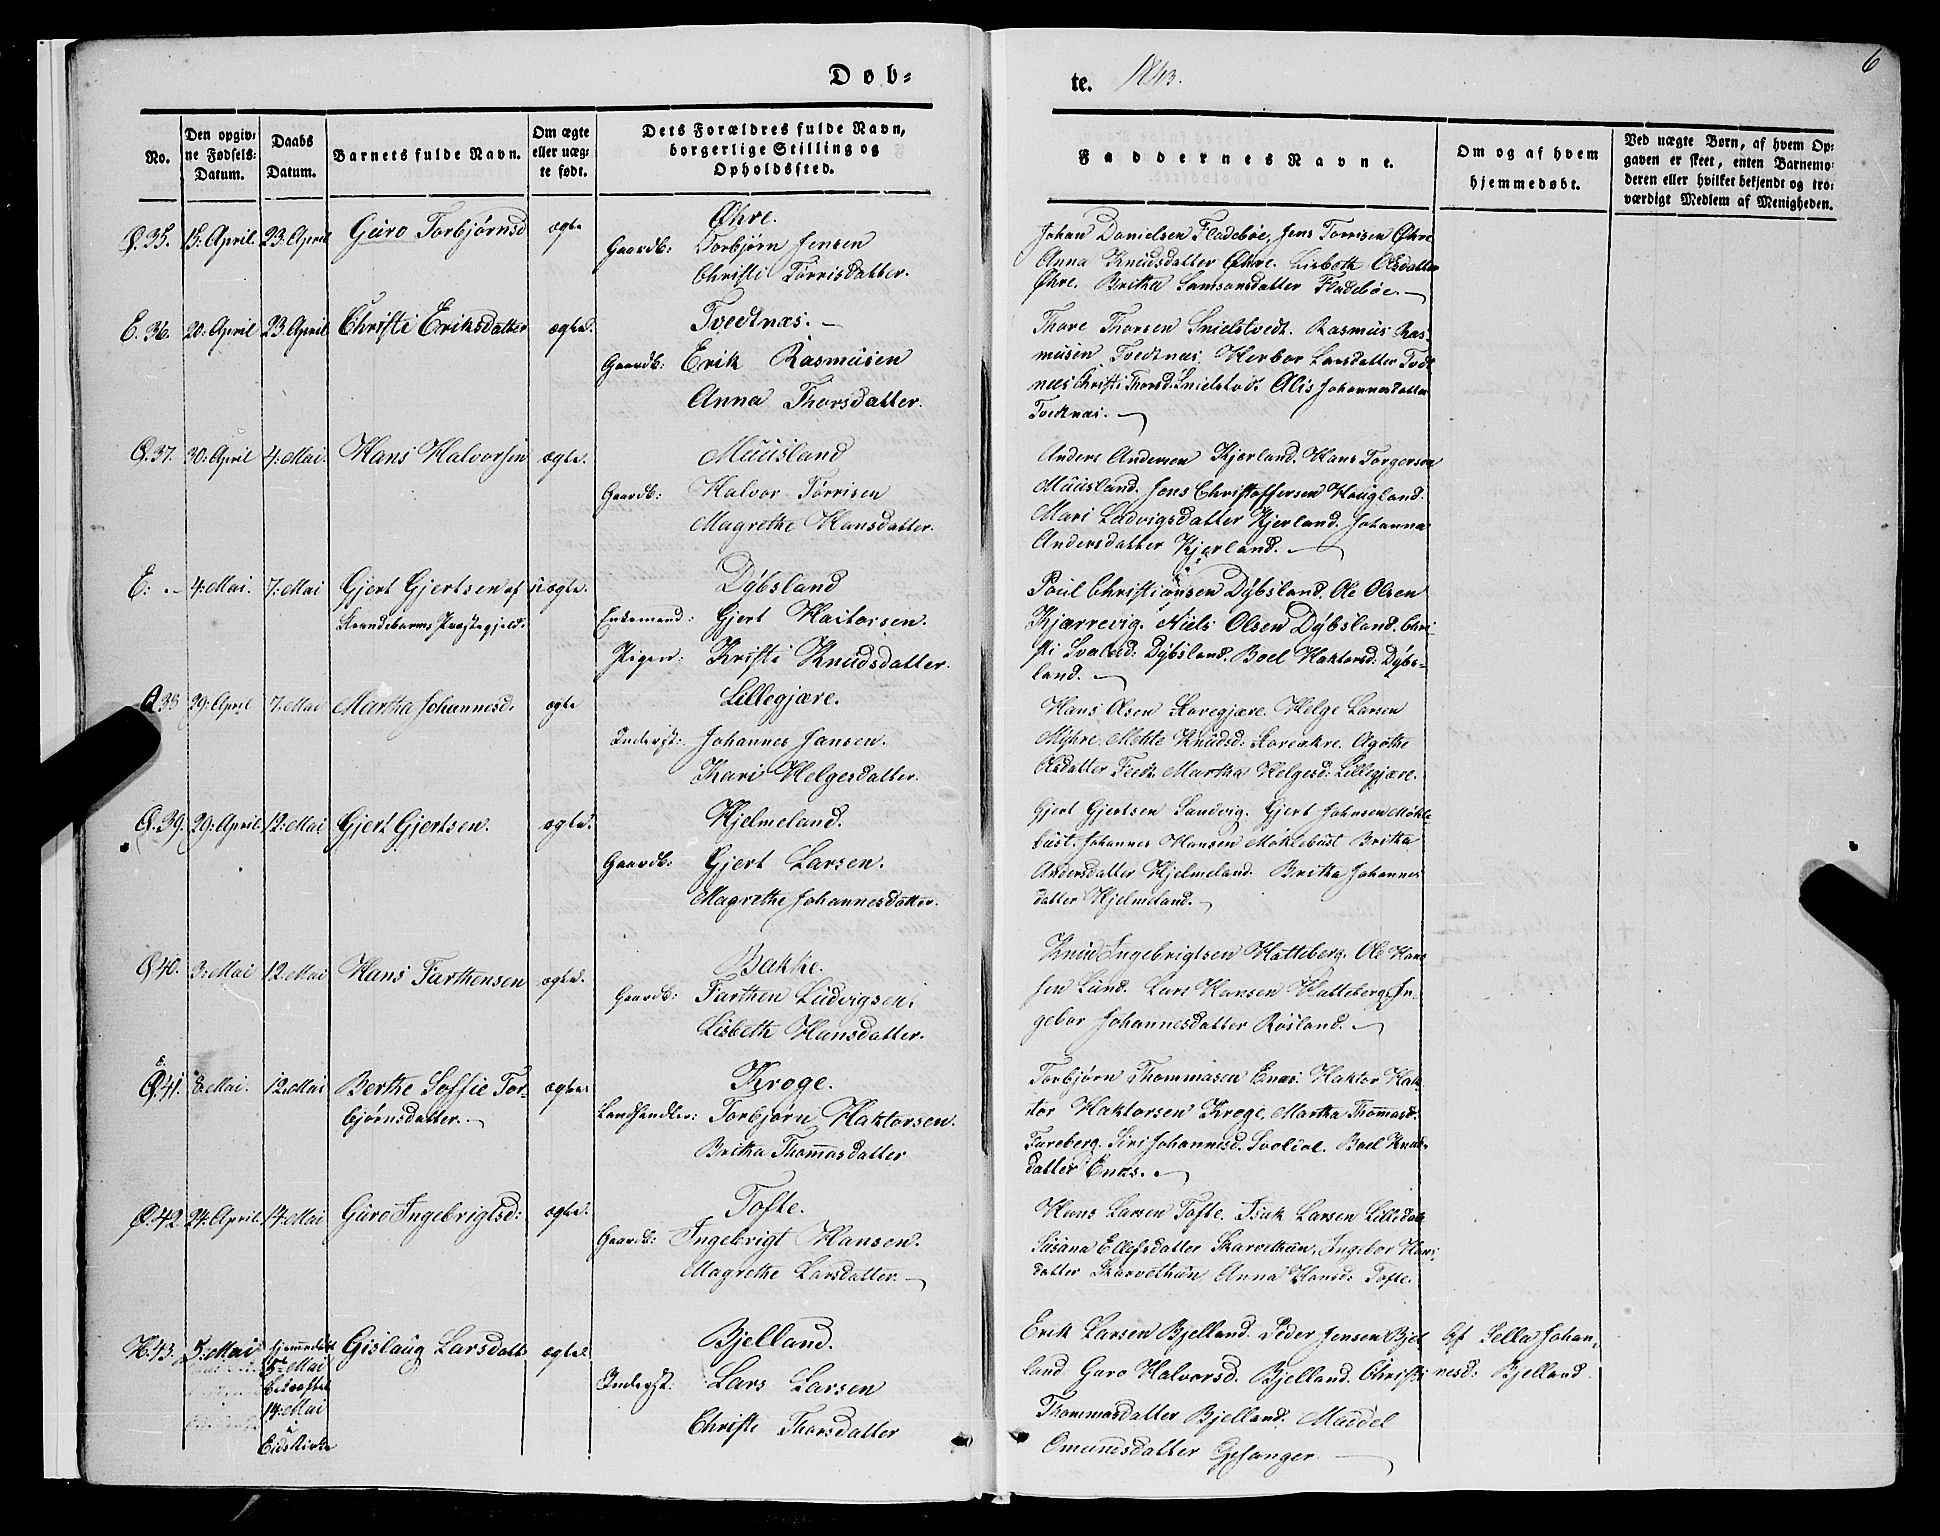 Døb-
te. 1843.
6
No.
Den opgiv-
ne Fødsels-
Datum.
Daabs
Datum.
Barnets fulde Navn.
Om ægte
eller uæg-
te født.
Dets Forældres fulde Navn,
borgerlige Stilling og
Opholdssted.
Faddernes Navne.
Om og af hvem
hjemmedøbt.
Ved uægte Børn, af hvem Op-
gaven er skeet, enten Barnemo-
deren eller hvilket bekjendt og tro-
værdigt Medlem af Menigheden.
Ø.35. 15. April. 23. April Guro Torbjørnsd ægte
Øhre.
Gaardb: Torbjørn Jensen
Christi Tørrisdatter.
Johan Danielsen Fladebøe, Jens Torrisen Øhre
Anna Knudsdatter Øhre. Lisbeth Olsdatter
Øhre. Britha Samsonsdatter Fladebøe.
E.36. 20. April 23 April. Christi Eriksdatter ægte.
Tvedtnæs.
Gaardb: Erik Rasmusen
Anna Thorsdatter.
Thore Thorsen Snielstvedt. Rasmus Ras-
musen Tvedtnæs. Herbor Larsdatter Tvedt
næs Christi Thorsd: Snielstvedt Alis Johannesdatter
Tvedtnæs.
Ø.37. 30. April 4. Mai. Hans Halvorsen ægte.
Muusland
Gaardb: Halvor Tørrisen
Magrethe Hansdatter.
Anders Andersen Kjerland. Hans Torgersen
Muusland. Jens Christoffersen Haugland.
Mari Ludvigsdatter Kjerland. Johanna
Andersdatter Kjerland.
E: 4. Mai. 7. Mai Gjert Gjertsen af uægte.
Strandebarms Præstegjeld.
Dybsland
Enkemand: Gjert Haitorsen.
Pigen: Kristi Knudsdatter.
Poul Christiansen Dybsland. Ole Olsen
Kjærrevig. Niels Olsen Dybsland. Chri-
sti Dybsland. Boel Haktorsd: Dybs-
land.
29. April 7. Mai Martha Johannesd. ægte
Lillegjære.
Inderst: Johannes Jansen.
Kari Helgesdatter.
Hans Olsen Storegjære. Helge Larsen
Myhre. Methe Knudsd: Agothe
Olsdatter Martha Helgesd: Lillegjære.
Ø.39. 29. April 12. Mai Gjert Gjertsen. ægte.
Hjelmeland.
Gaardb: Gjert Larsen.
Magrethe Johannesdatter.
Gjert Gjertsen Sandvig. Gjert Johnsen Møkle
bust. Johannes Hansen Møklebust Britha
Andersdatter Hjelmeland. Britha Johannes
datter Hjelmeland.
Ø.40. 3. Mai 12. Mai Hans Farthensen ægte.
Bakke.
Gaardb: Farthen Ludvigsen.
Lisbeth Hansdatter.
Knud Ingebrigtsen Hatteberg. Ole Han-
sen Lund. Lars Hansen Hatteberg. In-
gebor Johannesdatter Røsland.
Ø.41. 8. Mai. 12. Mai Berthe Soffie Tor- ægte.
bjørnsdatter.
Kroge.
Landhandler: Torbjørn Haktorsen.
Britha Thomasdatter
Torbjørn Thommasen Enæs. Haktor Hak-
tor Haktorsen Kroge. Martha Thomasd.
Fureberg. Siri Johannesd. Boel Knuds-
datter Enæs.
Ø.42. 24. April. 14. Mai Guro Ingebrigtsd: ægte.
Tofte.
Gaardb: Ingebrigt Hansen.
Magrethe Larsdatter
Hans Larsen Tofte. Isak Larsen Lilledal
Susana Ellefsdatter Skarvethun, Ingebor Hans-
datter Skarvethun Anna Hansd: Tofte.
H.43. 5. Mai Hjemmedøbt Gislaug Larsdatt: ægte.
5. Mai
bekræftet
14. Mai
i
Eids Kirke
Bjelland.
Inderst: Lars Larsen
Christi Thorsdatter
Erik Larsen Bjelland. Peder Jensen Bjel-
land Guro Halvorsd. Bjelland. Christi
Thommasdatter Bjelland. Maddel
Omundsdatter Gjesanger.
Af Sella Johan-
nesd: Bjelland